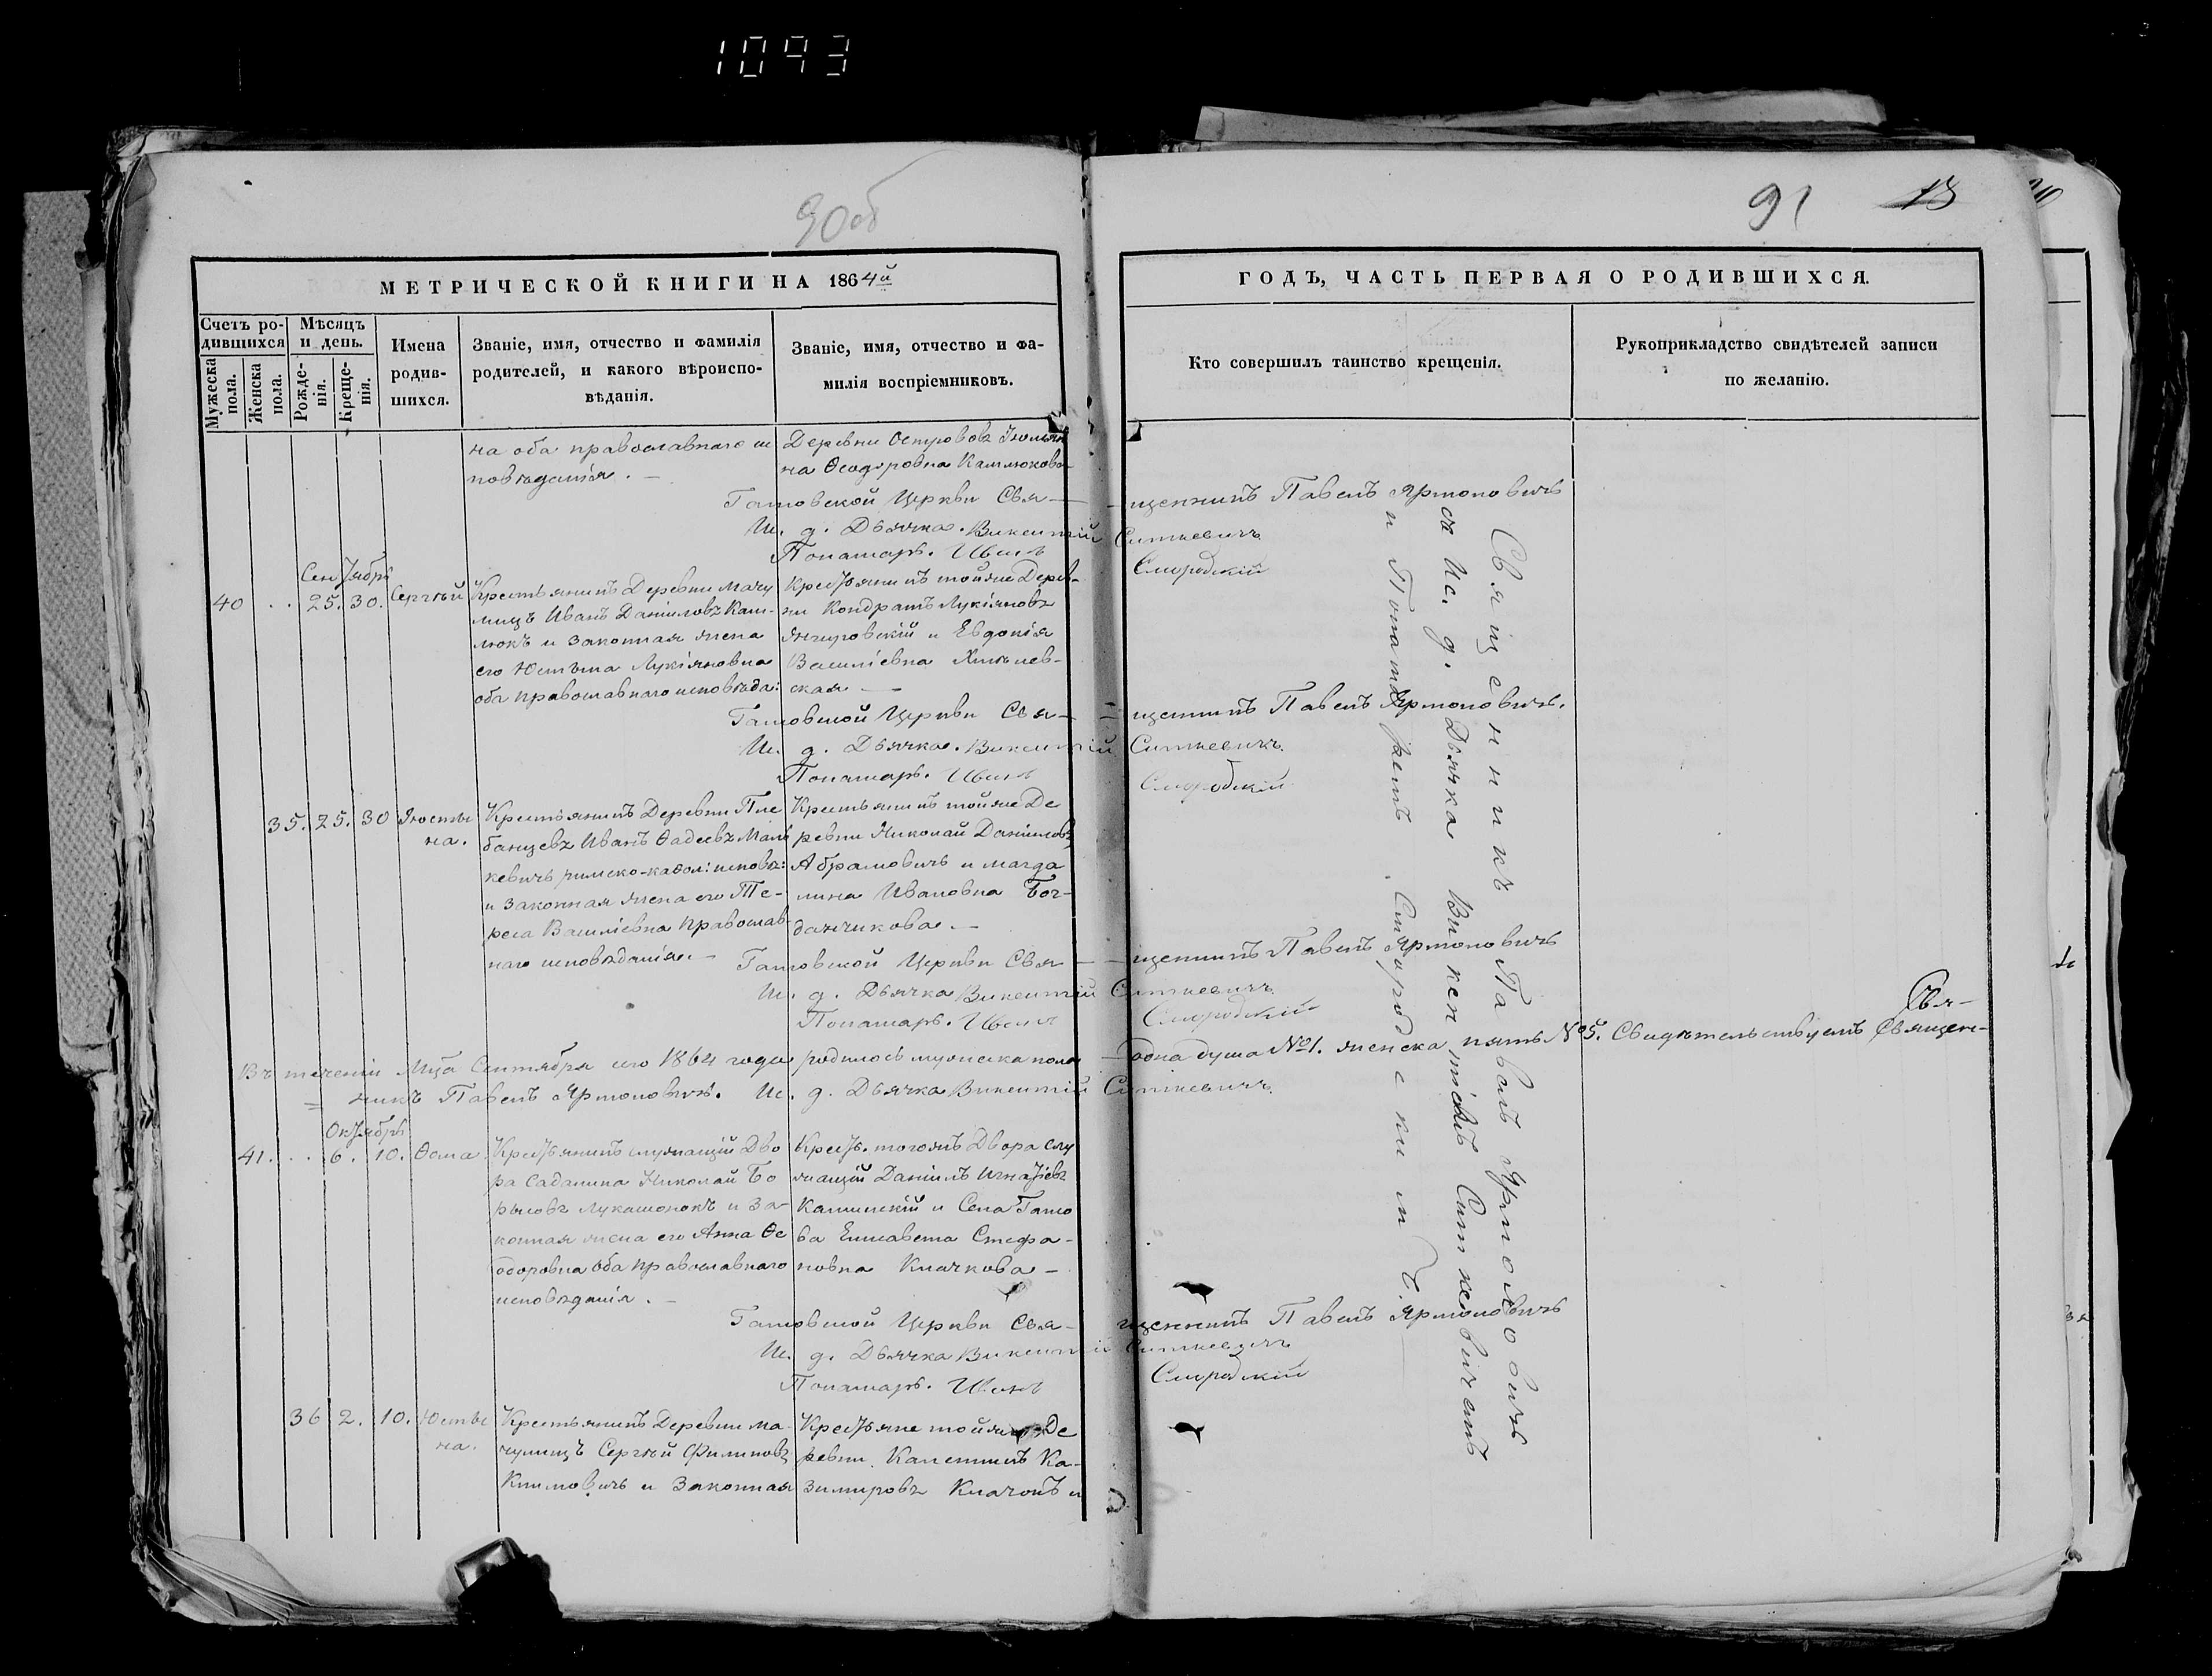 1093
90об
91 13
МЕТРИЧЕСКОЙ КНИГИ НА 1864й
ГОДЪ, ЧАСТЬ ПЕРВАЯ О РОДИВШИХСЯ.
Счетъ ро-
дившихся
Мужеска пола.
Женска пола.
Мѣсяцъ и день.
Рожде-
нія.
Креще-
нія.
Имена
родив-
шихся.
Званіе, имя, отчество и фамилія
родителей, и какого вѣроиспо-
вѣданія.
Званіе, имя, отчество и фа-
милія воспріемниковъ.
Кто совершилъ таинство крещенія.
Рукоприкладство свидѣтелей записи
по желанію.
на оба православнаго ис
повѣданія. —
Деревни Острововъ
на Ѳеодоровна Камлюкова
Гатовской Церкви Свя— —щенникъ Павелъ Ярмоловичъ
Ис. д. Дьячка. Викентій Ситкевичъ
Понамарь. Иванъ Смародскій
Сентябрь
40 . . 25. 30. Сергѣй
Крестьянинъ Деревни Мачу
лищъ Иванъ Даніиловъ Кам-
люкъ и законная жена
его Юстына Лукіяновна
оба православнаго исповѣда:
Крестьянинъ тойже Дерев-
ни Кондратъ Лукіяновъ
Янчуровскій и Евдокія
Василіевна
ская —
Гатовской Церкви Свя— —щенникъ Павелъ Ярмоловичъ.
Ис. д. Дьячка. Викентій Ситкевичъ.
Понамарь. Иванъ Смародскій
35. 25. 30 Іюсты
на.
Крестьянинъ Деревни Пле
банцевъ Иванъ Ѳадеевъ Маць
кевичъ римско-кафол: исповѣ:
и законная жена его Те-
реса Василіевна православ-
наго исповѣданія. —
Крестьянинъ тойже Де
ревни Николай Даніиловъ
Абрамовичъ и Магда
лина Ивановна Бог-
данчикова. —
Гатовской Церкви Свя— —щенникъ Павелъ Ярмоловичъ
Ис. д. Дьячка Викентій Ситкевичъ.
Понамарь. Иванъ Смародскій
Въ теченіи Мца Сентября сего 1864 года родилось мужеска пола —одна душа №1. женска пять №5. Свидѣтельствуемъ Священ-
Свя-
= никъ Павелъ Ярмоловичъ. Ис. д. Дьячка Викентій Ситкевичъ.
Октябрь
41. . . 6. 10. Ѳома
Крестьянинъ служащій Дво
ра Садалина Николай Бо
рысовъ Лукашонокъ и за-
конная жена его Анна Ѳе
одоровна оба православнаго
исповѣданія. —
Крест. тогожъ Двора слу
жащій Даніилъ Игнатіевъ
Калинскій и Села Гато
ва Елисавета Стефа-
новна Клачкова —
Гатовской Церкви Свя— щенникъ Павелъ Ярмоловичъ
Ис. д. Дьячка Викентій Ситкевичъ
Понамарь. Иванъ Смародскій
36 2. 10. Юсты
на.
Крестьянинъ Деревни Ма-
чулищъ Сергѣй Филиповъ
Климовичъ и Законная
Крестьяне тойже Де
ревни Калестинъ Ка-
зимировъ Клачокъ и
Священникъ Павелъ Ярмоловичъ
съ Ис. д. Дьячка Викентіемъ Ситкевичемъ
и Понамаремъ Смародскимъ.